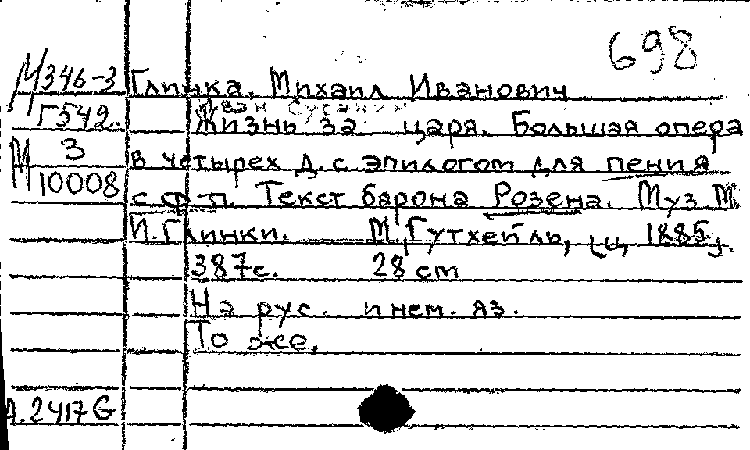 698
М346-3 Глинка. Михаил Иванович
Иван Сусанин
Г542. Жизнь за царя. Большая опера
М 3 в четырех д. с эпилогом для пения
10008 с ф-п. Текст барона Розена. Муз М.
И. Глинки. М, Гутхейль, ц, 1885,.
387с. 28 cm
На рус. и нем. яз.
То же.
A.2417G